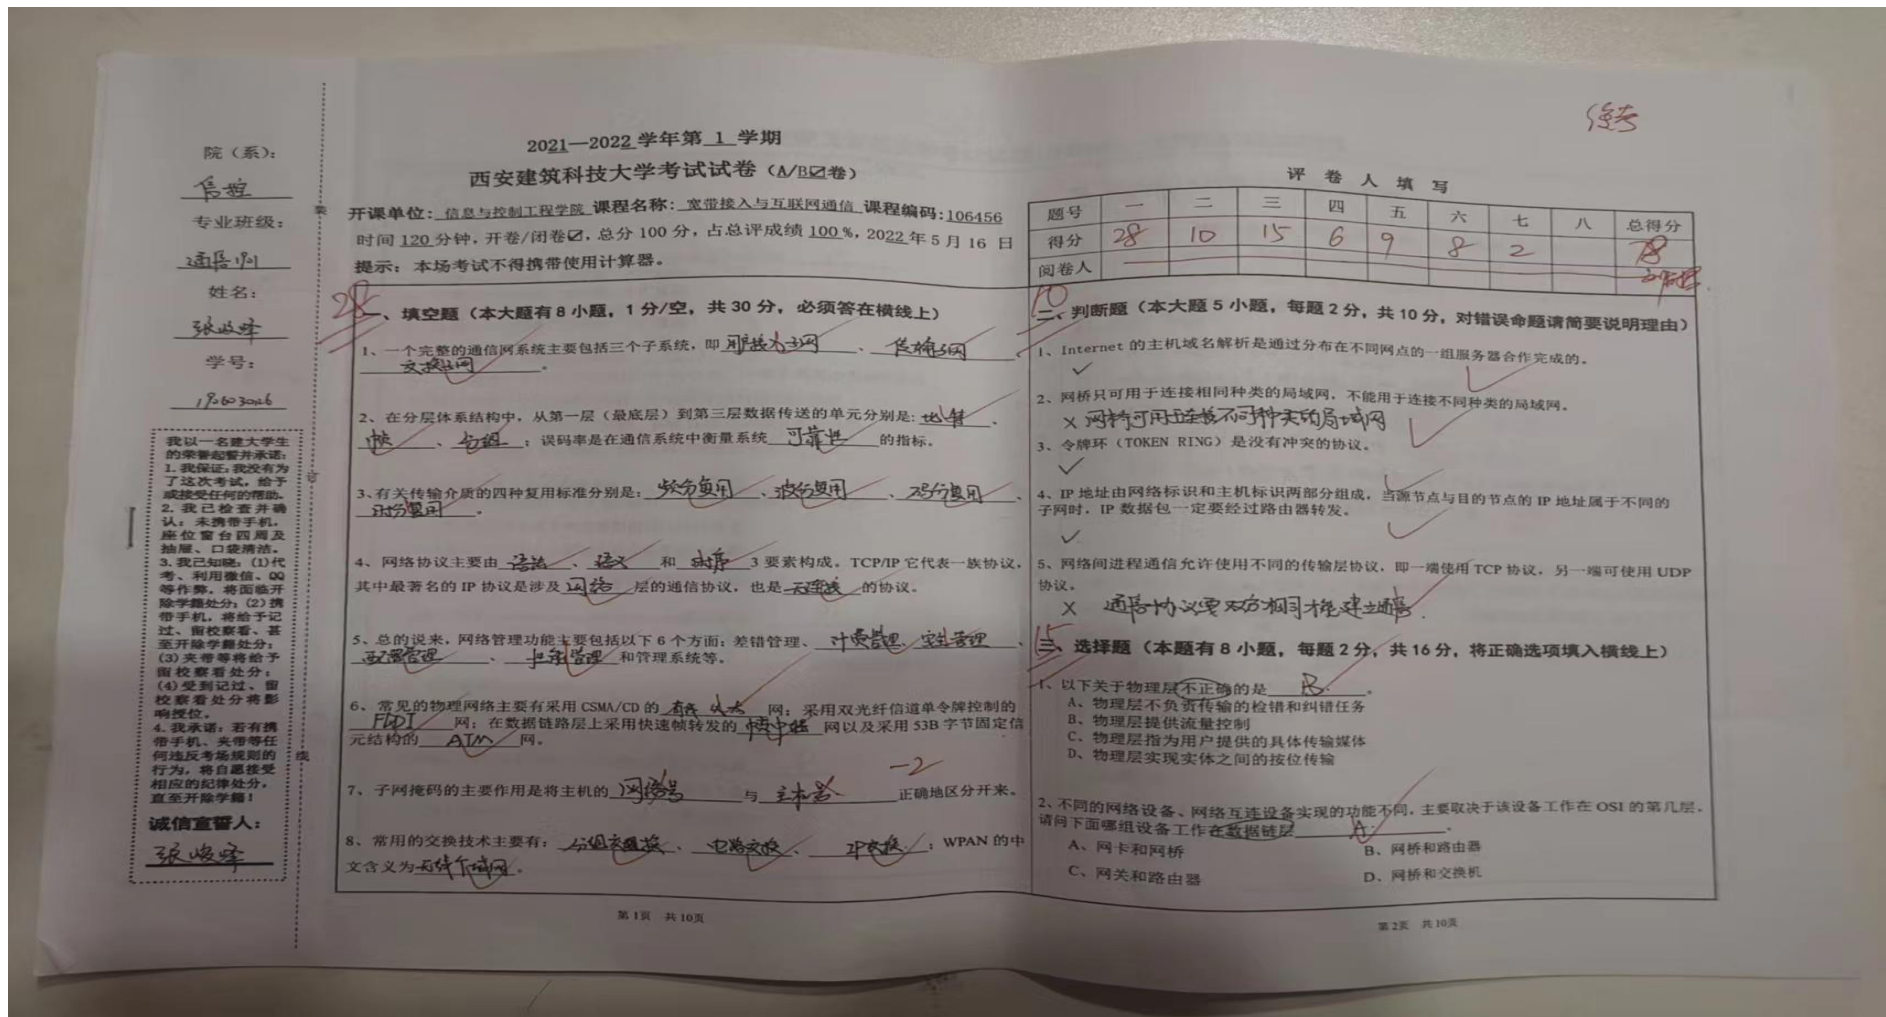 缓考
院（系）：
信控
专业班级：
通信1901
姓名：
张峻峰
学号：
装
订
线
我以一名建大学生
的荣誉起誓并承诺：
1.我保证：我没有为
了这次考试，给予
或接受任何的帮助。
2.我已检查并确
认：未携带手机，
座位窗台四周及
抽屉、口袋清洁。
3.我已知晓：(1)代
考、利用微信、QQ
等作弊，将面临开
除学籍处分；(2)携
带手机，将给予记
过、留校察看、甚
至开除学籍处分；
(3)夹带等将给予
留校察看处分；
(4)受到记过、留
校察看处分将影
响授位。
4.我承诺：若有携
带手机、夹带等任
何违反考场规则的
行为，将自愿接受
相应的纪律处分，
直至开除学籍！
诚信宣誓人：
张峻峰
2021—2022 学年第 1 学期
西安建筑科技大学考试试卷（A/B☑卷）
开课单位：信息与控制工程学院 课程名称：宽带接入与互联网通信 课程编码：106456
时间 120 分钟，开卷/闭卷☑，总分 100 分，占总评成绩 100 %，2022 年 5 月 16 日
提示：本场考试不得携带使用计算器。
28
一、填空题（本大题有 8 小题，1 分/空，共 30 分，必须答在横线上）
1、一个完整的通信网系统主要包括三个子系统，即 用户接入子网 、 传输子网 、
交换子网 。
2、在分层体系结构中，从第一层（最底层）到第三层数据传送的单元分别是：比特 、
帧 、 分组 ；误码率是在通信系统中衡量系统 可靠性 的指标。
3、有关传输介质的四种复用标准分别是： 频分复用 、波分复用 、 码分复用 、
时分复用 。
4、网络协议主要由 语法 、 语义 和 时序 3 要素构成。TCP/IP 它代表一族协议，
其中最著名的 IP 协议是涉及 网络 层的通信协议，也是 无连接 的协议。
5、总的说来，网络管理功能主要包括以下 6 个方面：差错管理、 计费管理、安全管理 、
配置管理 、 性能管理 和管理系统等。
6、常见的物理网络主要有采用 CSMA/CD 的 以太 网；采用双光纤信道单令牌控制的
FDDI 网；在数据链路层上采用快速帧转发的 帧中继 网以及采用 53B 字节固定信
元结构的 ATM 网。
-2
7、子网掩码的主要作用是将主机的 网络号 与 主机号 正确地区分开来。
8、常用的交换技术主要有： 分组交换 、 电路交换 、 IP交换 ；WPAN 的中
文含义为 无线个域网 。
第 1页 共 10页
评 卷 人 填 写
题号 一 二 三 四 五 六 七 八 总得分
得分 28 10 15 6 9 8 2 78
阅卷人
10
二、判断题（本大题 5 小题，每题 2 分，共 10 分，对错误命题请简要说明理由）
1、Internet 的主机域名解析是通过分布在不同网点的一组服务器合作完成的。
✓
2、网桥只可用于连接相同种类的局域网，不能用于连接不同种类的局域网。
× 网桥可用于连接不同种类的局域网
3、令牌环（TOKEN RING）是没有冲突的协议。
✓
4、IP 地址由网络标识和主机标识两部分组成，当源节点与目的节点的 IP 地址属于不同的
子网时，IP 数据包一定要经过路由器转发。
✓
5、网络间进程通信允许使用不同的传输层协议，即一端使用 TCP 协议，另一端可使用 UDP
协议。
× 通信协议要双方相同才能建立通信.
15
三、选择题（本题有 8 小题，每题 2 分，共 16 分，将正确选项填入横线上）
1、以下关于物理层不正确的是 B. 。
A、物理层不负责传输的检错和纠错任务
B、物理层提供流量控制
C、物理层指为用户提供的具体传输媒体
D、物理层实现实体之间的按位传输
2、不同的网络设备、网络互连设备实现的功能不同，主要取决于该设备工作在 OSI 的第几层，
请问下面哪组设备工作在数据链层 A. 。
A、网卡和网桥 B、网桥和路由器
C、网关和路由器 D、网桥和交换机
第 2页 共 10页